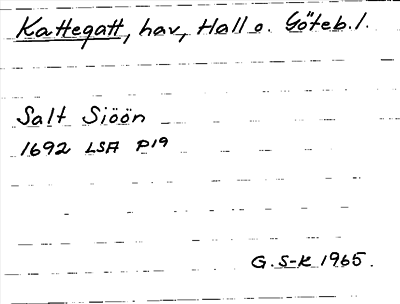 Kattegatt, hav, Hall o. Göteb. l.
Salt Siöön
1692 LSA P19
G. S-K 1965.